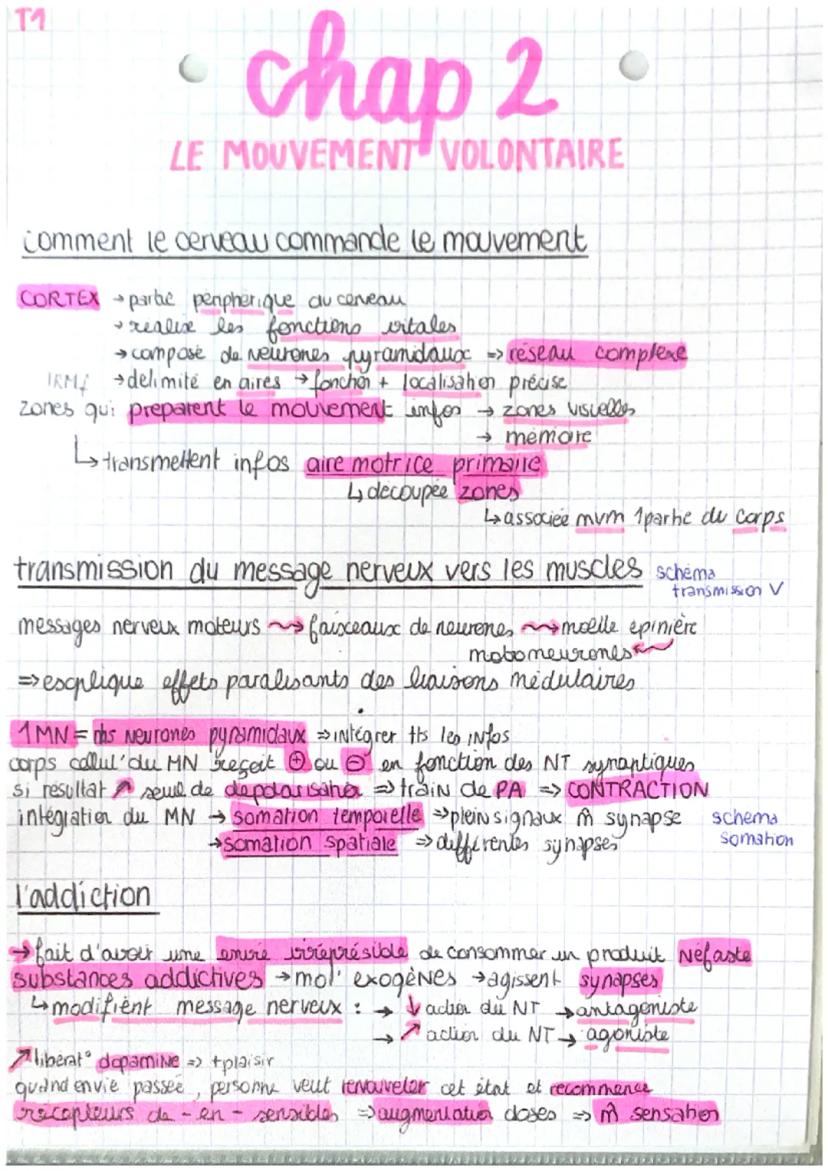 T1
chap 2
LE MOUVEMENT VOLONTAIRE
comment le cerveau commande le mouvement
CORTEX → partie périphérique du cerveau
→ réalise les fonctions vitales
→ composé de neurones pyramidaux ⇒ réseau complexe
IRMf → délimité en aires → fonction + localisation précise
zones qui préparent le mouvement infos → zones visuelles
→ mémoire
↳ transmettent infos aire motrice primaire
↳ découpée zones
↳ associée mvm 1 partie du corps
transmission du message nerveux vers les muscles schéma
transmission V
messages nerveux moteurs ⇝ faisceaux de neurones ⇝ moelle épinière
motoneurones ⇜
⇒ explique effets paralisants des liaisons médulaires
1 MN = +rs neurones pyramidaux ⇒ intégrer tts les infos
corps cellul' du MN reçoit ⊕ ou ⊖ en fonction des NT synaptiques
si résultat ↗ seuil de dépolarisation ⇒ train de PA ⇒ CONTRACTION
intégration du MN → somation temporelle ⇒ plein signaux m̂ synapse schéma
→ somation spatiale ⇒ différentes synapses somation
l'addiction
→ fait d'avoir une envie irréprésible de consommer un produit néfaste
substances addictives → mol' exogènes → agissent synapses
↳ modifient message nerveux : → ↓ action du NT → antagoniste
→ ↗ action du NT → agoniste
↗ libérat° dopamine ⇒ + plaisir
quand envie passée, personne veut renouveler cet état et recommence
récepteurs de - en - sensibles ⇒ augmentation doses ⇒ m̂ sensation